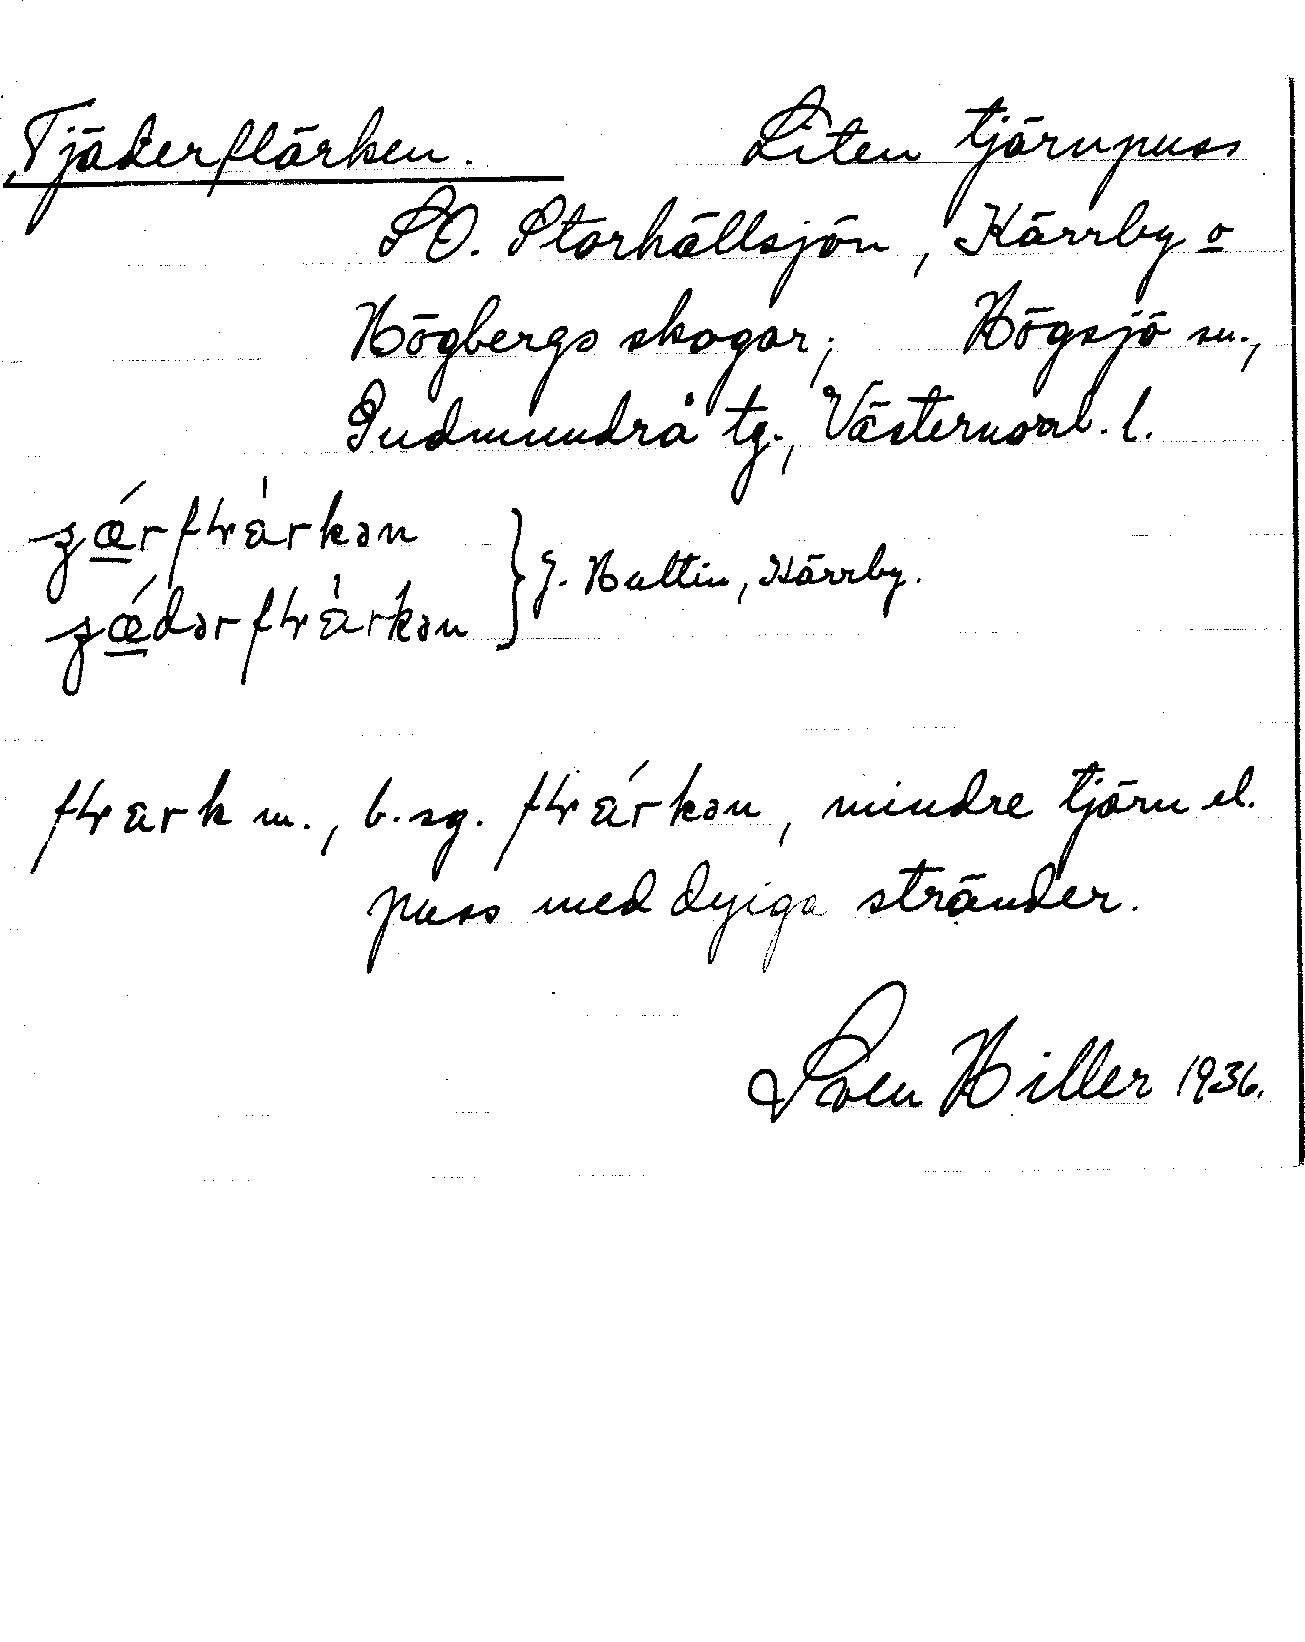 Tjäderflärken. Liten tjärnpuss
SO. Storhällsjön, Kärrby o
Högbergs skogar; Högsjö sn.,
Gudmundrå tg., Västernorrl. l.
J. Hultin, Kärrby.
m., b. sg., mindre tjärn el.
puss med dyiga stränder.
Sven Hiller 1936.